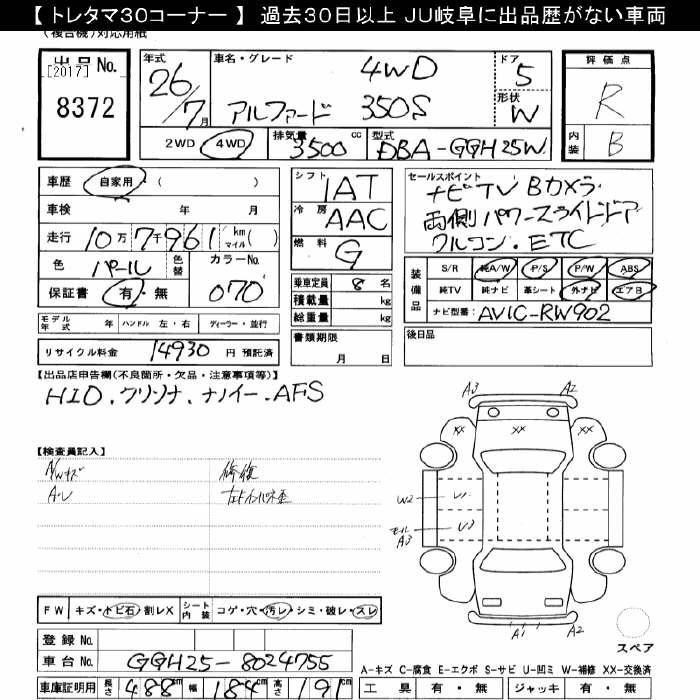 【 トレタマ30コーナー 】 過去30日以上 JU岐阜に出品歴がない車両
(複合機)対応用紙
出品No.
[2017]
8372
年式
26/7月
車名・グレード
4WD
アルファード 350S
ドア
5
形状
W
2WD 4WD
排気量 3500 cc
型式 DBA-GGH25W
評価点
R
内装
B
車歴 自家用・( )
車検 年 月
走行 10万7千961 km マイル ( )
色 パール 色替 カラーNo.
保証書 有・無 070
シフト 1AT
冷房 AAC
燃料 G
セールスポイント
ナビTV Bカメラ
両側パワースライドドア
クルコン・ETC
乗車定員 8 名
積載量 kg
総重量 kg
装備品
S/R 純A/W P/S P/W ABS
純TV 純ナビ 革シート 外ナビ エアB
ナビ型番: AVIC-RW902
モデル年式 年 ハンドル 左・右 ディーラー・並行
リサイクル料金 14930 円 預託済
書類期限
月 日
後日品
【出品店申告欄(不良箇所・欠品・注意事項等)】
HID.クリソナ.ナノイー.AFS
【検査員記入】
A/Wキズ 修復
A3 A2
XX XX XX
W2 U1
モール A3 U3
A1 A2
スペア
FW キズ・トビ石・割レX シート内装 コゲ・穴・汚レ・シミ・破レ・スレ
登録 No.
車台 No. GGH25-8024755
車庫証明用 長さ 488cm 幅 184cm 高さ 191cm
A-キズ C-腐食 E-エクボ S-サビ U-凹ミ W-補修 XX-交換済
工具 有・無 ジャッキ 有・無